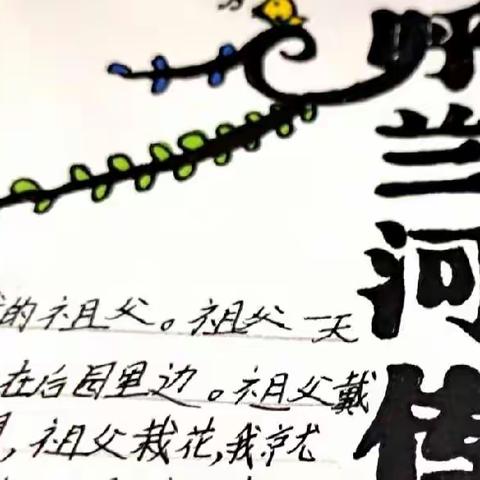 呼兰河传
的祖父。祖父一天
在后园里边。祖父戴
,祖父栽花,我就